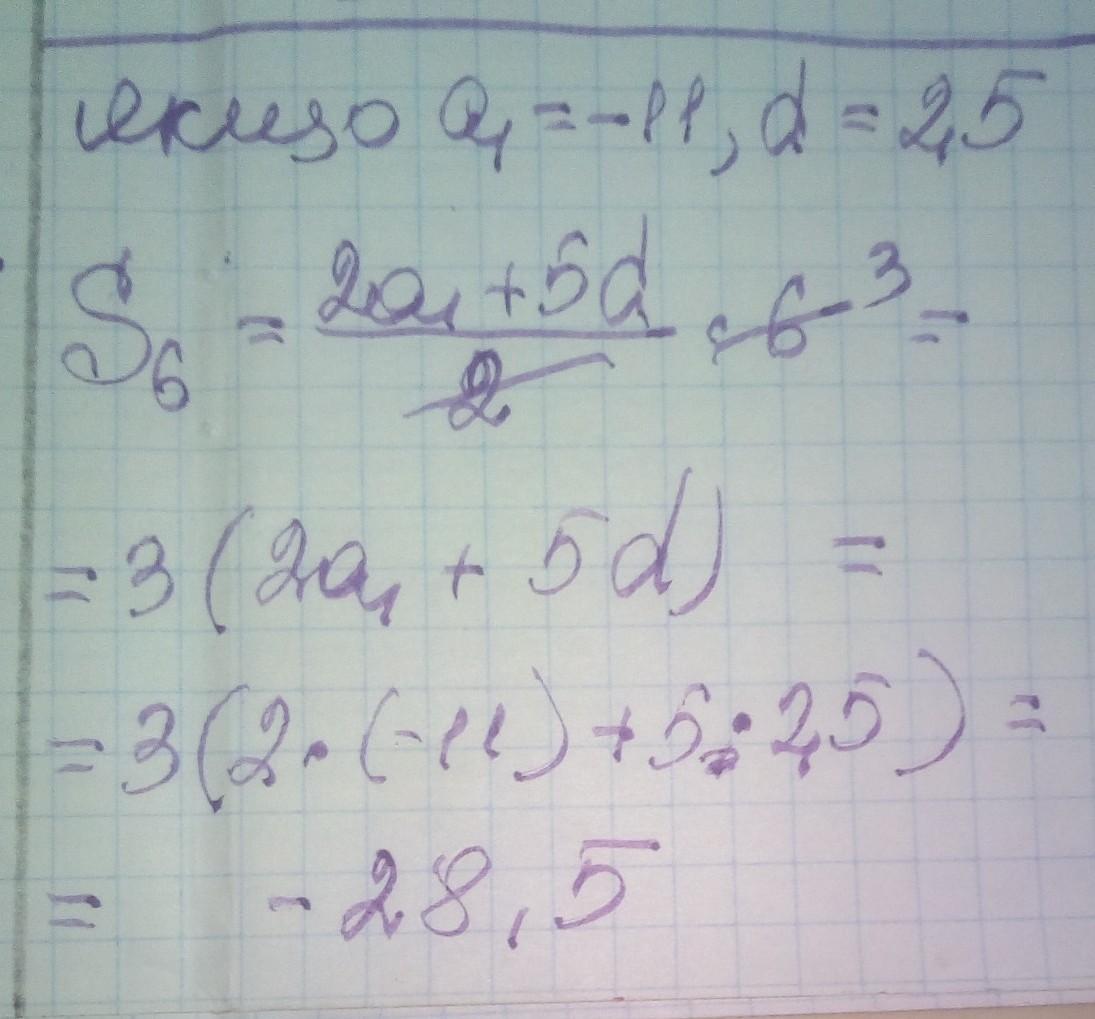 якщо a₁ = -11, d = 2,5
S₆ = (2a₁ + 5d)/2 · 6 ³ =
= 3 (2a₁ + 5d) =
= 3(2 · (-11) + 5 · 2,5) =
= - 28,5